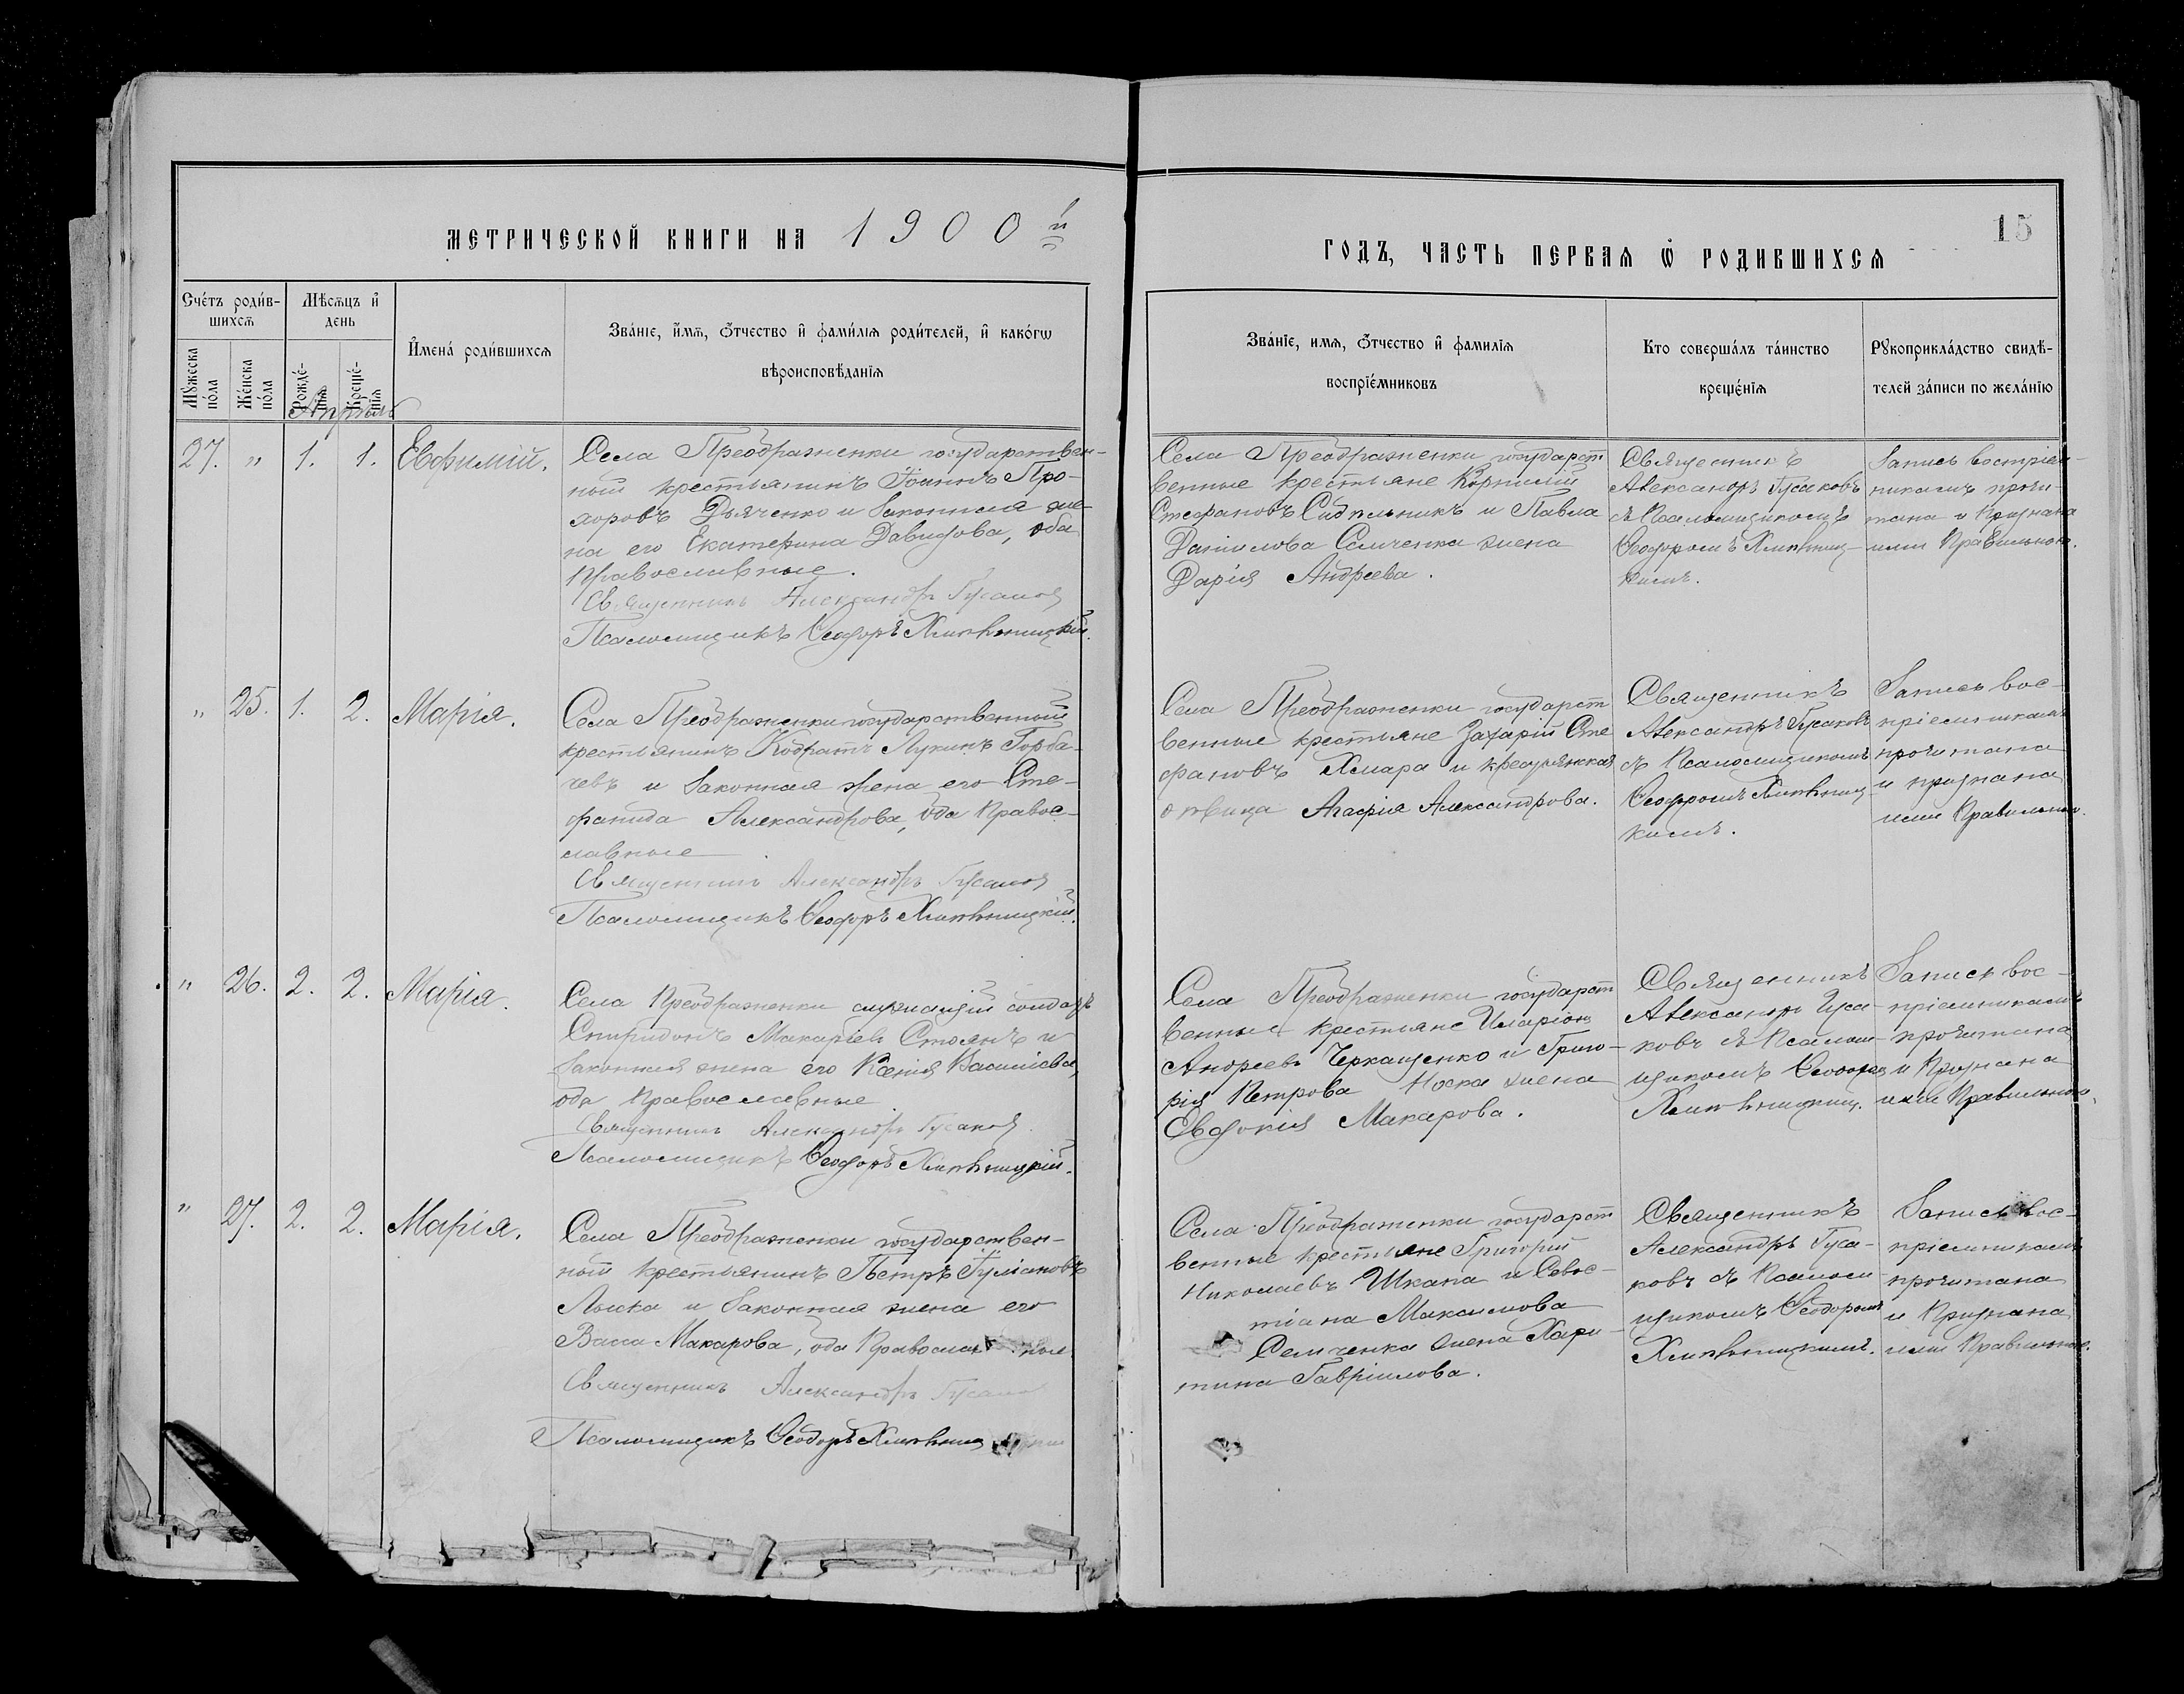 МЕТРИЧЕСКОЙ КНИГИ НА 1900й
ГОДЪ, ЧАСТЬ ПЕРВАЯ Ѡ РОДИВШИХСЯ
15
Счётъ роди́в-
шихсѧ
Мѣсѧцъ и҆
день
И҆мена̀ роди́вшихсѧ
Зва́нїе, и҆́мѧ, ѻ҆́тчество и҆ фами́лїѧ роди́телей, и҆ како́гѡ
вѣроисповѣ́данїѧ
Зва́нїе, имѧ, ѻ҆́тчество и҆ фамилїѧ
воспрїе́мниковъ
Кто соверша́лъ та́инство
креще́нїѧ
Рꙋкоприкла́дство свидѣ́-
телей за́писи по жела́нїю
Мꙋ́жеска
по́ла
Же́нска
по́ла
Рожде́-
нїѧ
Креще́-
нїѧ
Апрѣль
27. " 1. 1. Евфимій.
Села Преображенки государствен-
ный крестьянинъ Іоаннъ Про-
хоровъ Дьяченко и законная же-
на его Екатерина Давидова, оба
Православные.
Священникъ Александръ Гусаковъ
Псаломщикъ Ѳеодоръ Хмѣльницкій.
Села Преображенки государст
венные крестьяне Корнилій
Стефановъ Сидѣльникъ и Павла
Даніилова Семченка жена
Дарія Андреева.
Священникъ
Александръ Гусаковъ
съ Псаломщикомъ
Ѳеодоромъ Хмѣльниц-
кимъ.
Запись воспріем-
никамъ прочи-
тана и Признана
ими Правильною.
" 25. 1. 2. Марія.
Села Преображенки государственный
крестьянинъ Кодратъ Лукинъ Горба-
чевъ и законная жена его Сте-
фанида Александрова, оба Правос-
лавные
Священникъ Александръ Гусаковъ
Псаломщикъ Ѳеодоръ Хмѣльницкій.
Села Преображенки государст
венные крестьяне Захарій Сте
фановъ Хмара и крестьянская
дѣвица Агафія Александрова.
Священникъ
Александръ Гусаковъ
съ Псаломщикомъ
Ѳеодоромъ Хмѣльниц-
кимъ.
Запись вос-
пріемникамъ
прочитана
и признана
ими Правильною.
" 26. 2. 2. Марія.
Села Преображенки служащій солдатъ
Спиридонъ Макаріевъ Стоянъ и
законная жена его Ксенія Василіева,
оба Православные
Священникъ Александръ Гусаковъ
Псаломщикъ Ѳеодоръ Хмѣльницкій.
Села Преображенки государст
венные крестьяне Иларіонъ
Андреевъ Черкащенко и Григо-
рія Петрова Носка жена
Евдокія Макарова.
Священникъ
Александръ Гуса-
ковъ съ Псалом-
щикомъ Ѳеодоромъ
Хмѣльницкимъ.
Запись вос-
пріемникамъ
прочитана
и Признана
ими Правильною.
" 27. 2. 2. Марія.
Села Преображенки государствен-
ный крестьянинъ Петръ Іуліановъ
Лыска и законная жена его
Васса Макарова, оба Православные.
Священникъ Александръ Гусаковъ
Псаломщикъ Ѳеодоръ Хмѣльницкій
Села Преображенки государст
венные крестьяне Григорій
Николаевъ Шкапа и Севос-
тіана Максимова
Семченка жена Хари-
тина Гавріилова.
Священникъ
Александръ Гуса-
ковъ съ Псалом-
щикомъ Ѳеодоромъ
Хмѣльницкимъ.
Запись вос-
пріемникамъ
прочитана
и Признана
ими Правильною.